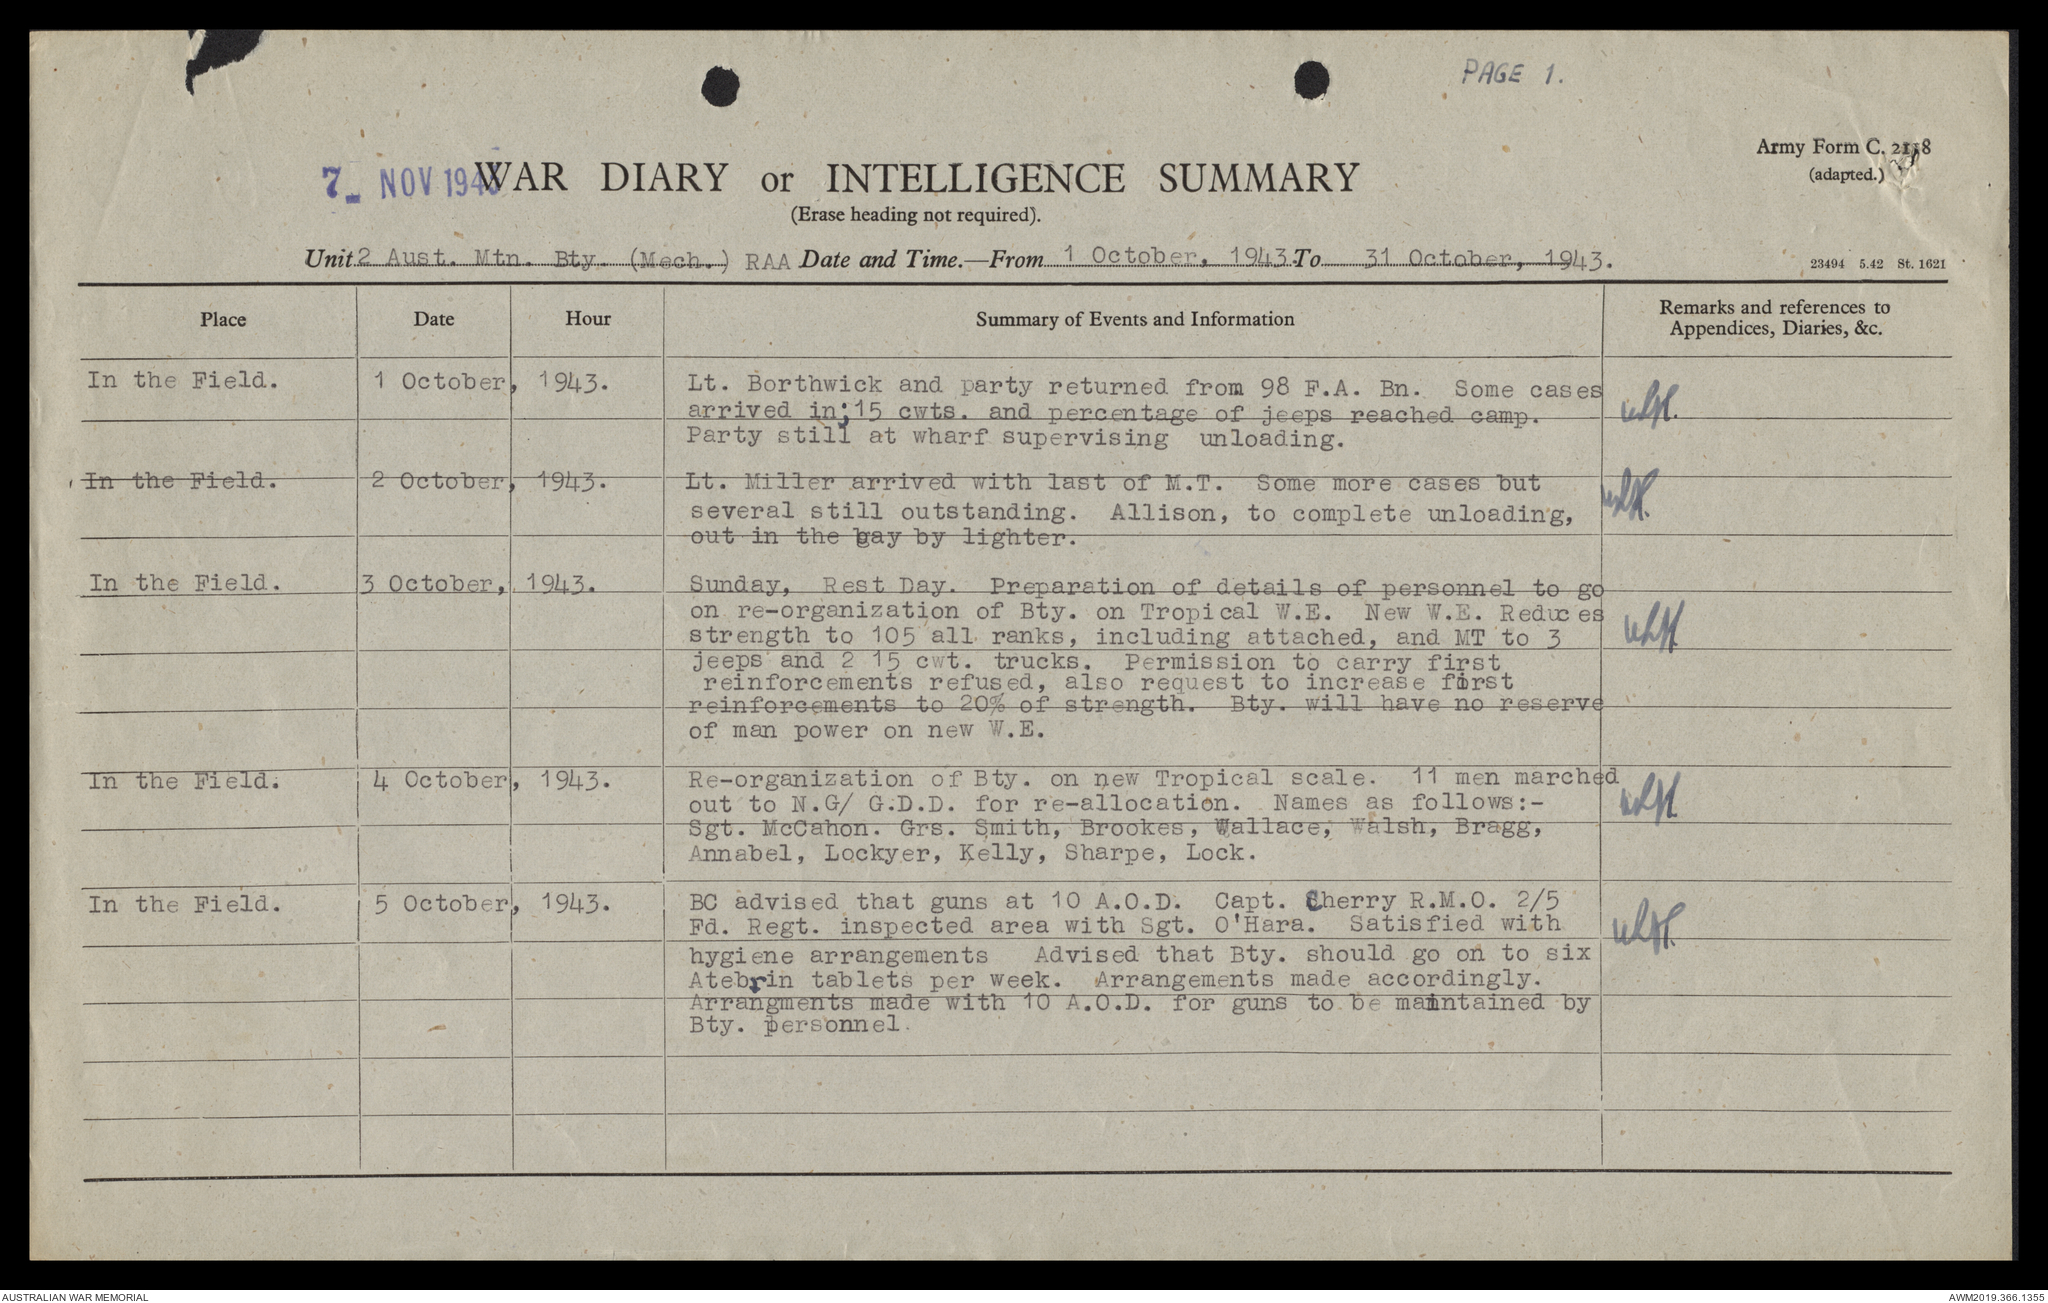 PAGE 1.
Army Form C. 2118
(adapted.)
7 NOV 1943
WAR DIARY or INTELLIGENCE SUMMARY
(Erase heading not required).
Unit 2 Aust. Mtn. Bty. (Mech.) RAA Date and Time.—From 1 October, 1943. To 31 October, 1943.
23494 5.42 St. 1621
Place Date Hour Summary of Events and Information Remarks and references to
Appendices, Diaries, &c.
In the Field. 1 October, 1943. Lt. Borthwick and party returned from 98 F.A. Bn. Some cases
arrived in; 15 cwts. and percentage of jeeps reached camp.
Party still at wharf supervising unloading.
In the Field. 2 October, 1943. Lt. Miller arrived with last of M.T. Some more cases but
several still outstanding. Allison, to complete unloading,
out in the bay by lighter.
In the Field. 3 October, 1943. Sunday, Rest Day. Preparation of details of personnel to go
on re-organization of Bty. on Tropical W.E. New W.E. Reduces
strength to 105 all ranks, including attached, and MT to 3
jeeps and 2 15 cwt. trucks. Permission to carry first
reinforcements refused, also request to increase first
reinforcements to 20% of strength. Bty. will have no reserve
of man power on new W.E.
In the Field. 4 October, 1943. Re-organization of Bty. on new Tropical scale. 11 men marched
out to N.G/ G.D.D. for re-allocation. Names as follows:-
Sgt. McCahon. Grs. Smith, Brookes, Wallace, Walsh, Bragg,
Annabel, Lockyer, Kelly, Sharpe, Lock.
In the Field. 5 October, 1943. BC advised that guns at 10 A.O.D. Capt. Cherry R.M.O. 2/5
Fd. Regt. inspected area with Sgt. O'Hara. Satisfied with
hygiene arrangements Advised that Bty. should go on to six
Atebrin tablets per week. Arrangements made accordingly.
Arrangments made with 10 A.O.D. for guns to be maintained by
Bty. personnel.
AUSTRALIAN WAR MEMORIAL
AWM2019.366.1355